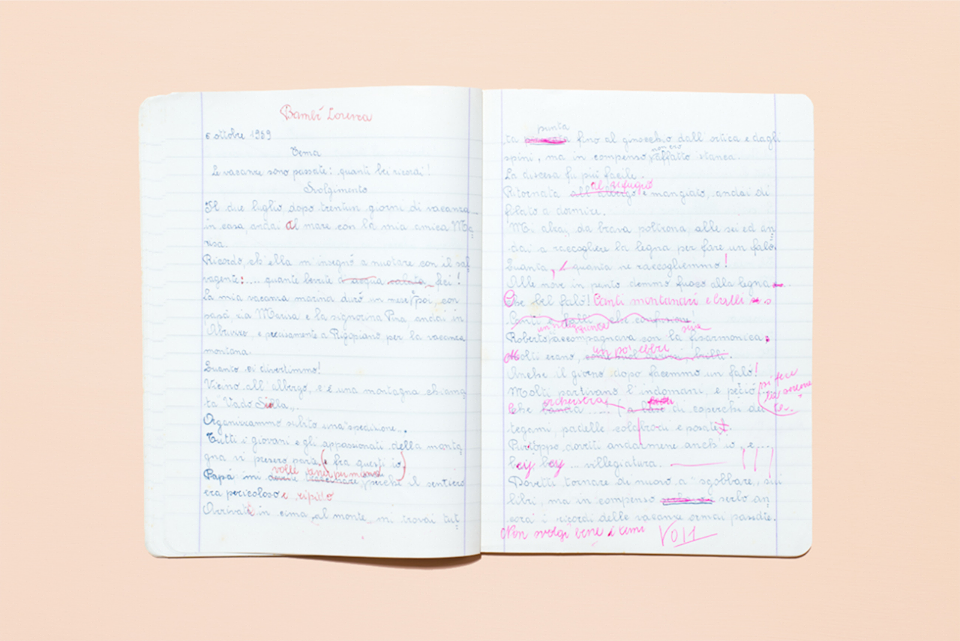 Bambi Lorenza
6 ottobre 1969
Tema
Le vacanze sono passate: quanti bei ricordi!
Svolgimento
Il due luglio, dopo trentun giorni di vacanze
in casa andai al mare con la mia amica Ma
risa.
Ricordo, ch'ella m'insegnò a nuotare con il sal
vagente:... quante bevute acqua salata fei!
La mia vacanza marina durò un mese, poi con
papà la Marisa e la signorina Pina andai in
Abruzzo, e precisamente a per la vacanza
montana.
Quanto ci divertimmo!
Vicino all'albergo, c'è una montagna chiama
ta "Vado
Organizzammo subito una spedizione.
Tutti i giovani e gli appassionati della monta
gna vi presero parte (fra questi io)
volle
Papà mi perché il sentiero
era pericoloso e ripido
Arrivati in cima al monte, mi trovai tut
punta
ta fino al ginocchio dall'ortica e dagli
non ero
spini, ma in compenso affatto stanca.
La discesa fu più facile.
al rifugio
Ritornata e mangiato, andai di
filato a dormire.
Mi alzai, da brava poltrona, alle sei ed an
dai a raccogliere la legna per fare un falò.
Quanta, quanta ne raccogliemmo!
Alle nove in punto demmo fuoco alla legna
Che bel falò! Canti montanari e balli
Roberto accompagnava con la fisarmonica.
un po' ebbri
Molti erano,
Anche il giorno dopo facemmo un falò!
Molti partivano l'indomani e perciò
orchestra
Che di coperchi dei
tegami, padelle e posate
Purtroppo dovetti andarmene anch'io, e...
bey bey villeggiatura. !!!
Dovetti tornare di nuovo a "sgobbare" sui
libri, ma in compenso serbo an
cora i ricordi delle vacanze ormai passate.
Non svolgi bene i temi VOTI